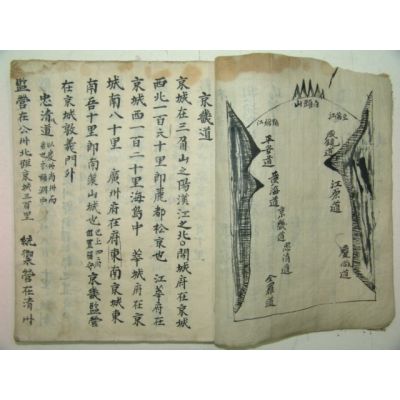 白頭山
豆滿江
鴨綠江
咸鏡道
平安道
江原道
黃海道
京畿道
忠淸道
慶尙道
全羅道
京畿道
京城在三角山之陽漢江之北○開城府在京城
西北一百六十里卽麗都松京也 江華府在
京城西一百二十里海島中 華城府在京
城南八十里 廣州府在府東南京城東
南五十里卽南漢山城也 已上四府 置留守 京畿監營
在京城敦義門外
忠淸道
監營在公州北距京城三百里 統禦營在淸州